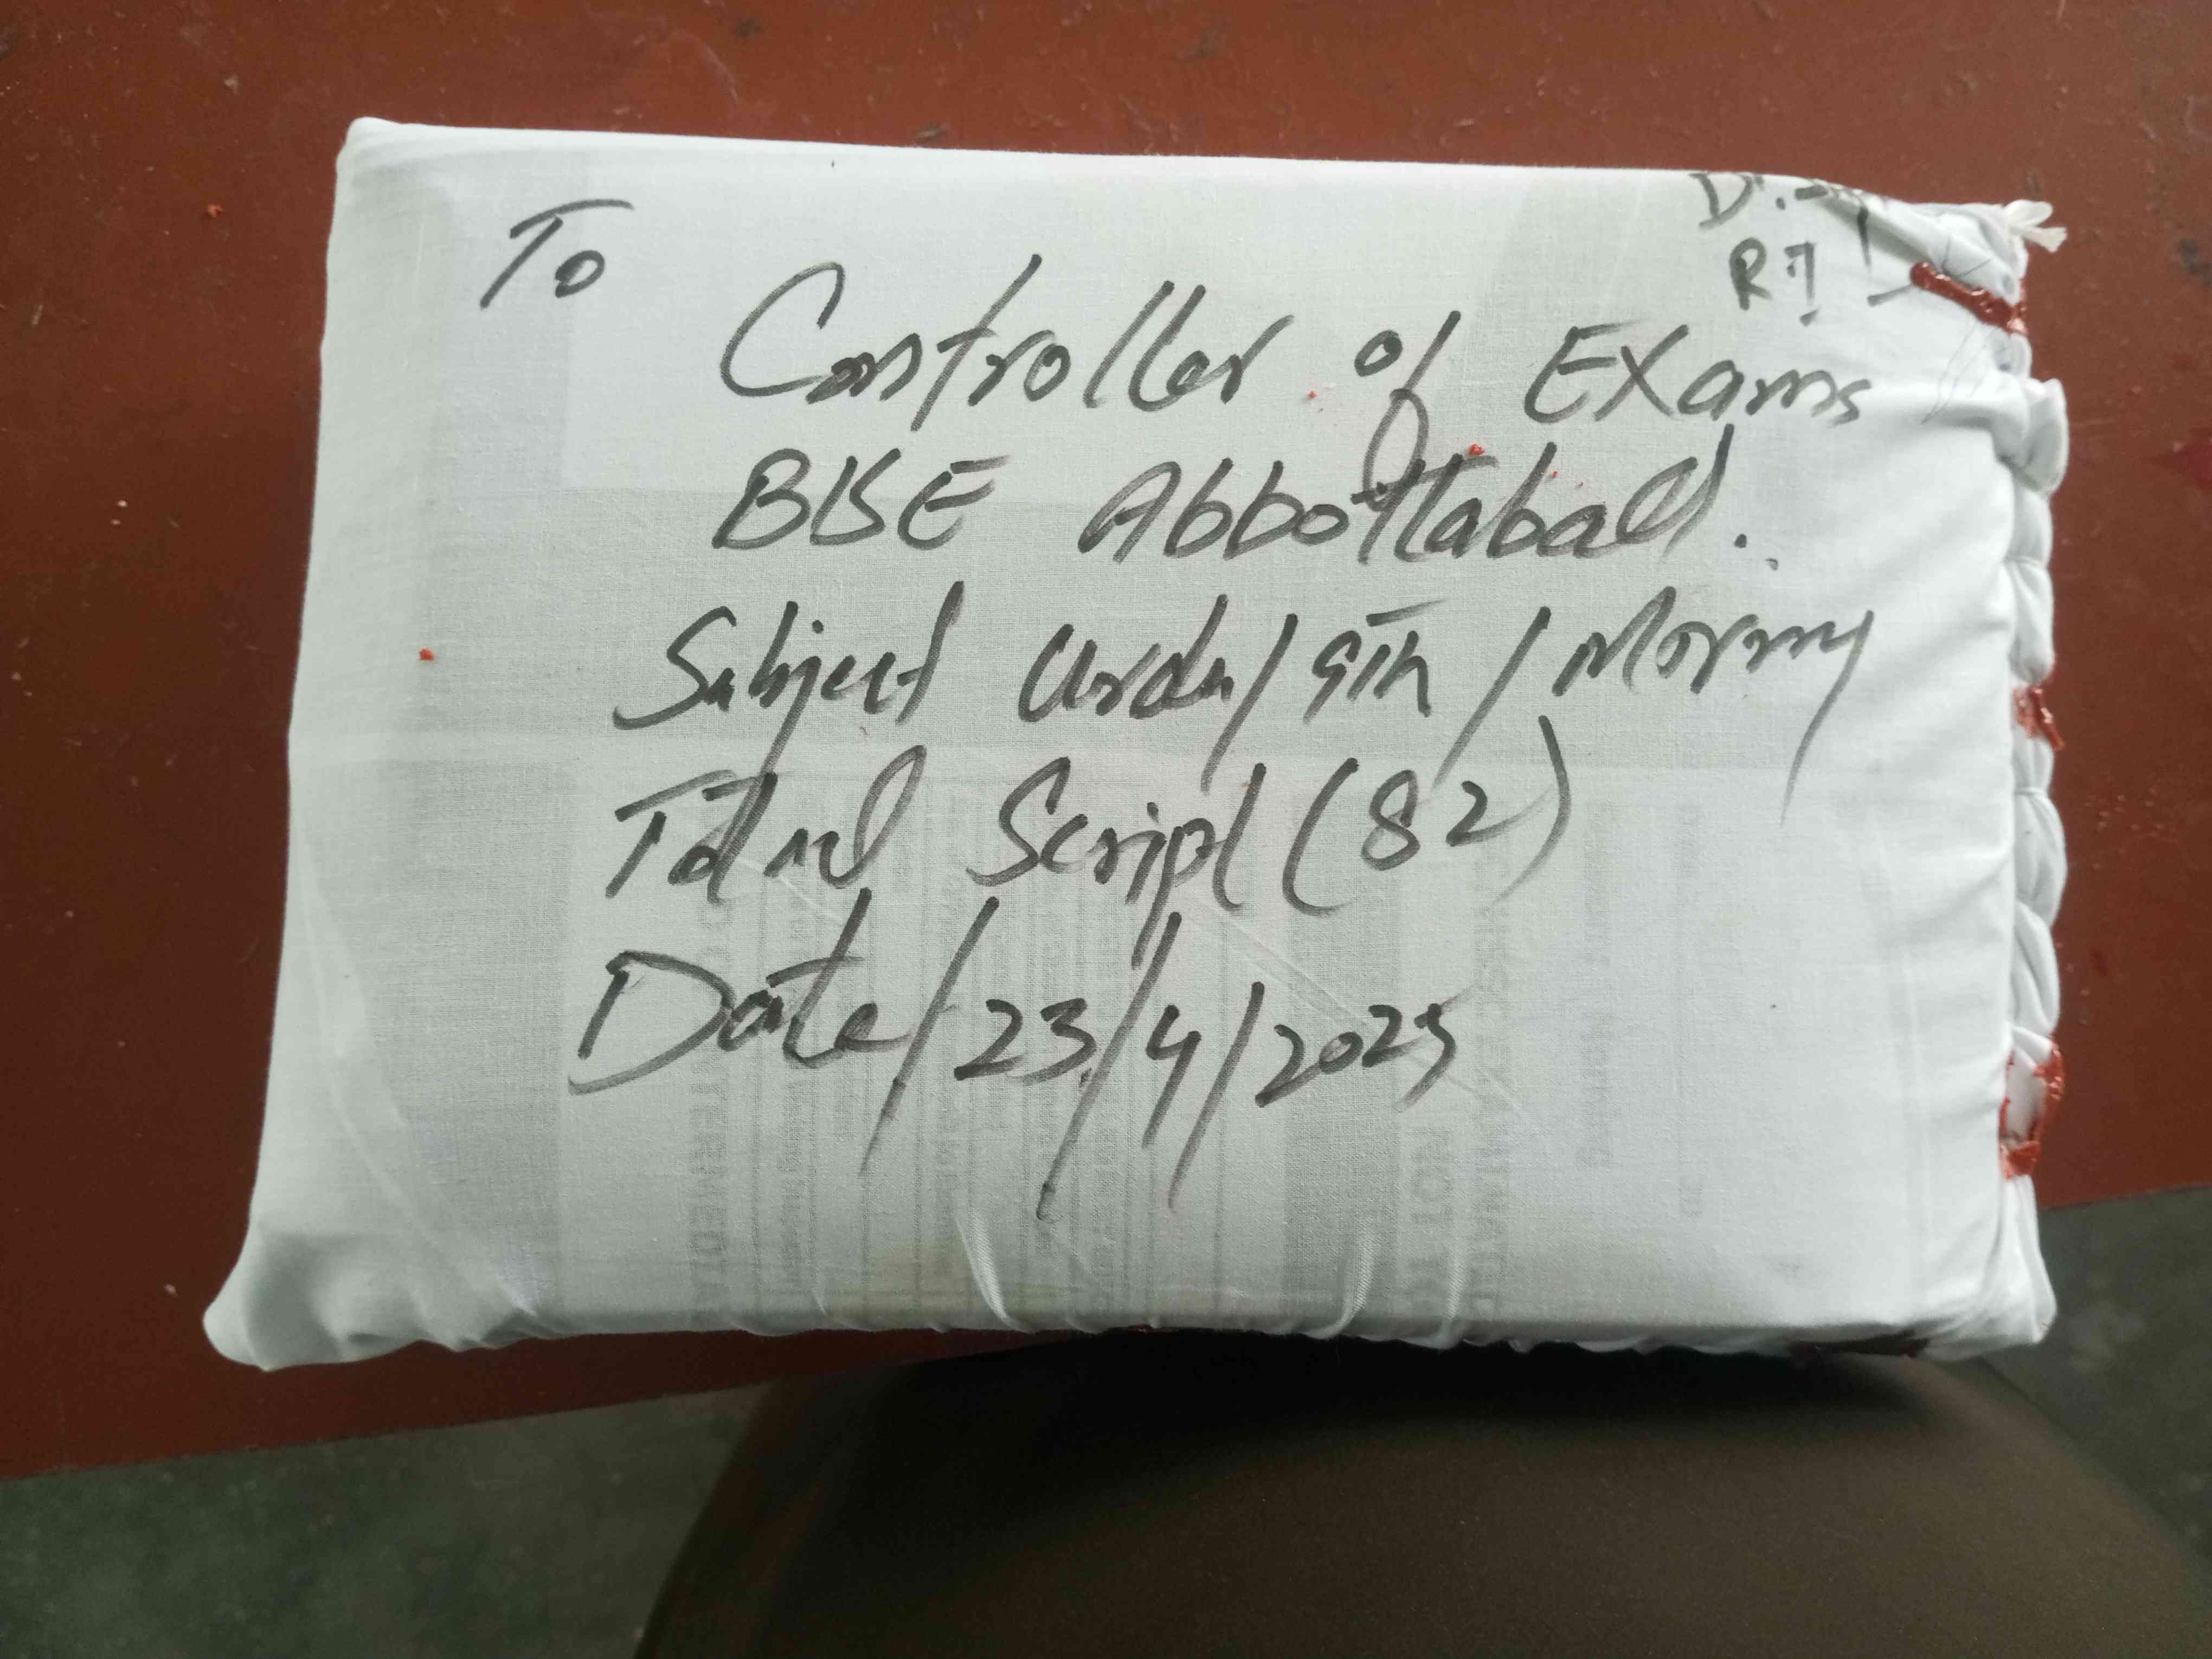 To
Controller of Exams
BISE Abbottabad.
Subject Urdu/9th/Morning
Total Script (82)
Date/23/4/2025